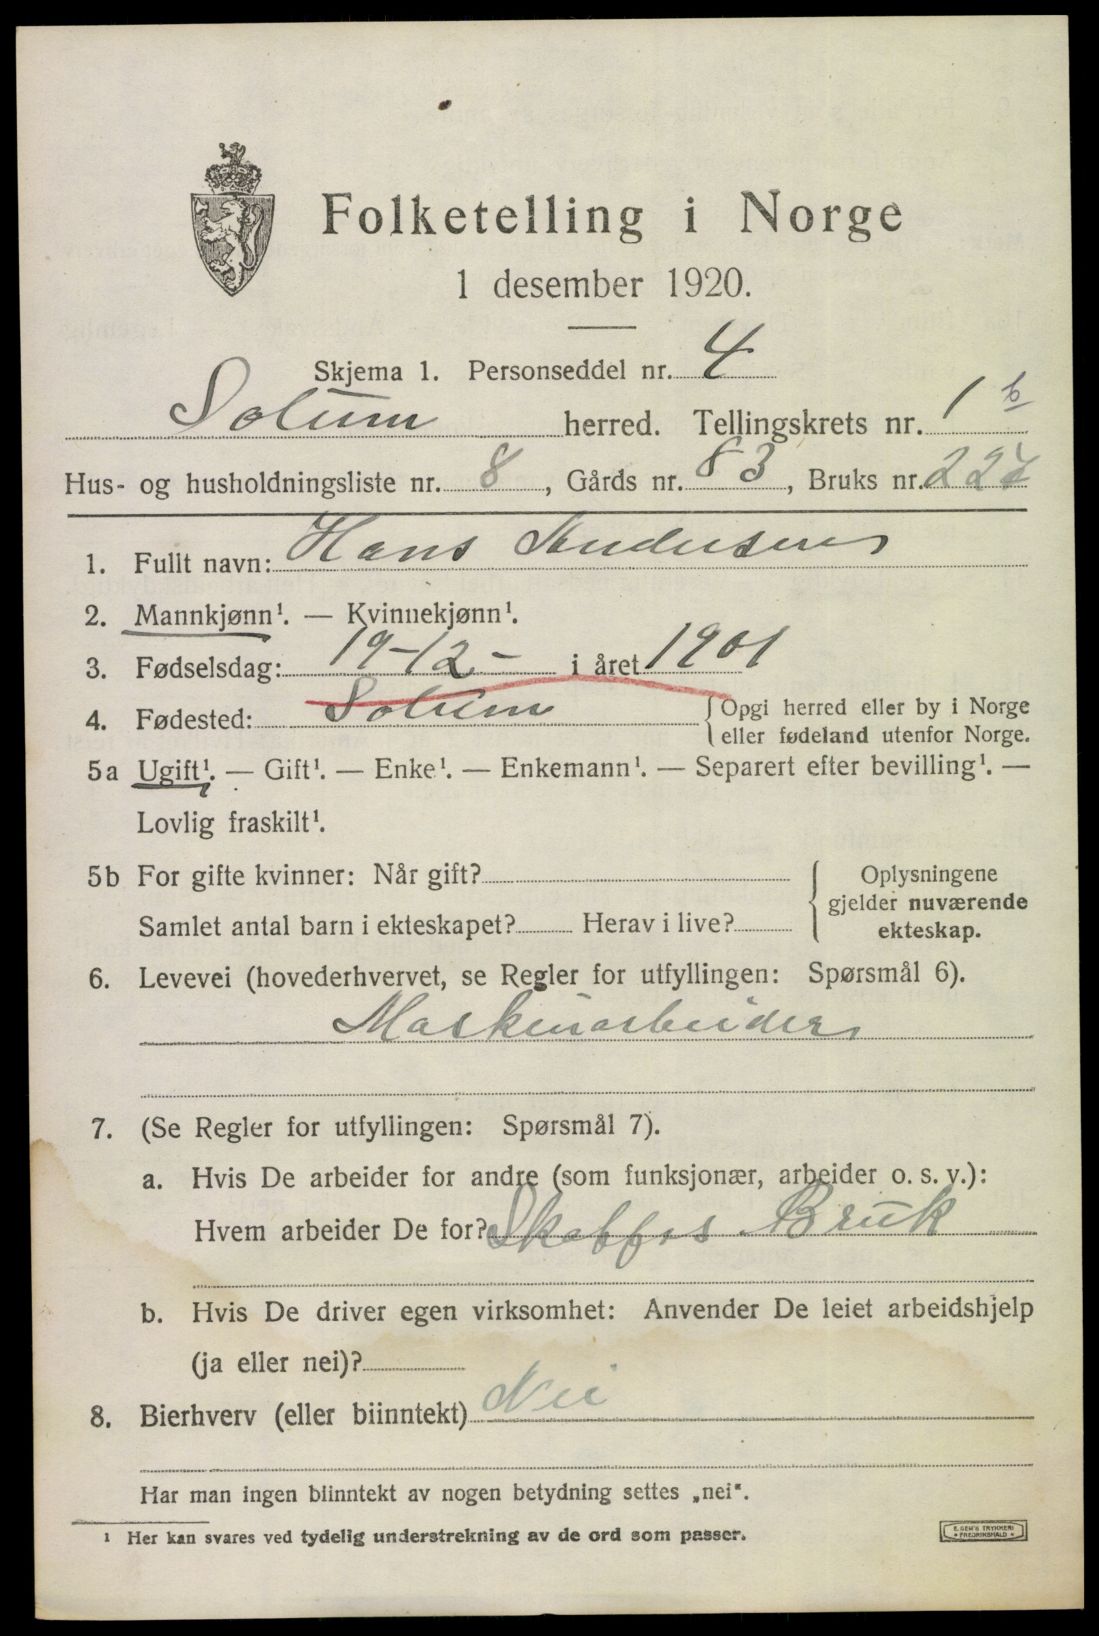 Folketelling i Norge
1 desember 1920.
Skjema 1. Personseddel nr. 4
Solum herred. Tellingskrets nr. 1 b
Hus- og husholdningsliste nr. 8, Gårds nr. 83, Bruks nr. 227
1. Fullt navn: Hans Andersen
2. Mannkjønn¹. — Kvinnekjønn¹.
3. Fødselsdag: 19-12- i året 1901
4. Fødested: Solum {Opgi herred eller by i Norge
eller fødeland utenfor Norge.
5a Ugift¹. — Gift¹. — Enke¹. — Enkemann¹. — Separert efter bevilling¹. —
Lovlig fraskilt¹.
5b For gifte kvinner: Når gift? { Oplysningene
gjelder nuværende
Samlet antal barn i ekteskapet? Herav i live? ekteskap.
6. Levevei (hovederhvervet, se Regler for utfyllingen: Spørsmål 6).
Maskinarbeider
7. (Se Regler for utfyllingen: Spørsmål 7).
a. Hvis De arbeider for andre (som funksjonær, arbeider o. s. v.):
Hvem arbeider De for? Skotfos Bruk
b. Hvis De driver egen virksomhet: Anvender De leiet arbeidshjelp
(ja eller nei)?
8. Bierhverv (eller biinntekt) Nei
Har man ingen biinntekt av nogen betydning settes „nei".
¹ Her kan svares ved tydelig understrekning av de ord som passer.
E. SEM'S TRYKKERI
FREDRIKSHALD